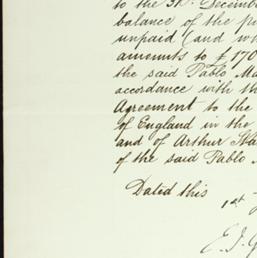 to the 31st December
balance of the
unpaid (and
amounts to £170
the said Pablo
accordance with
Agreement to the
of England in the
and of Arthur
of the said Pablo
Dated this
1st